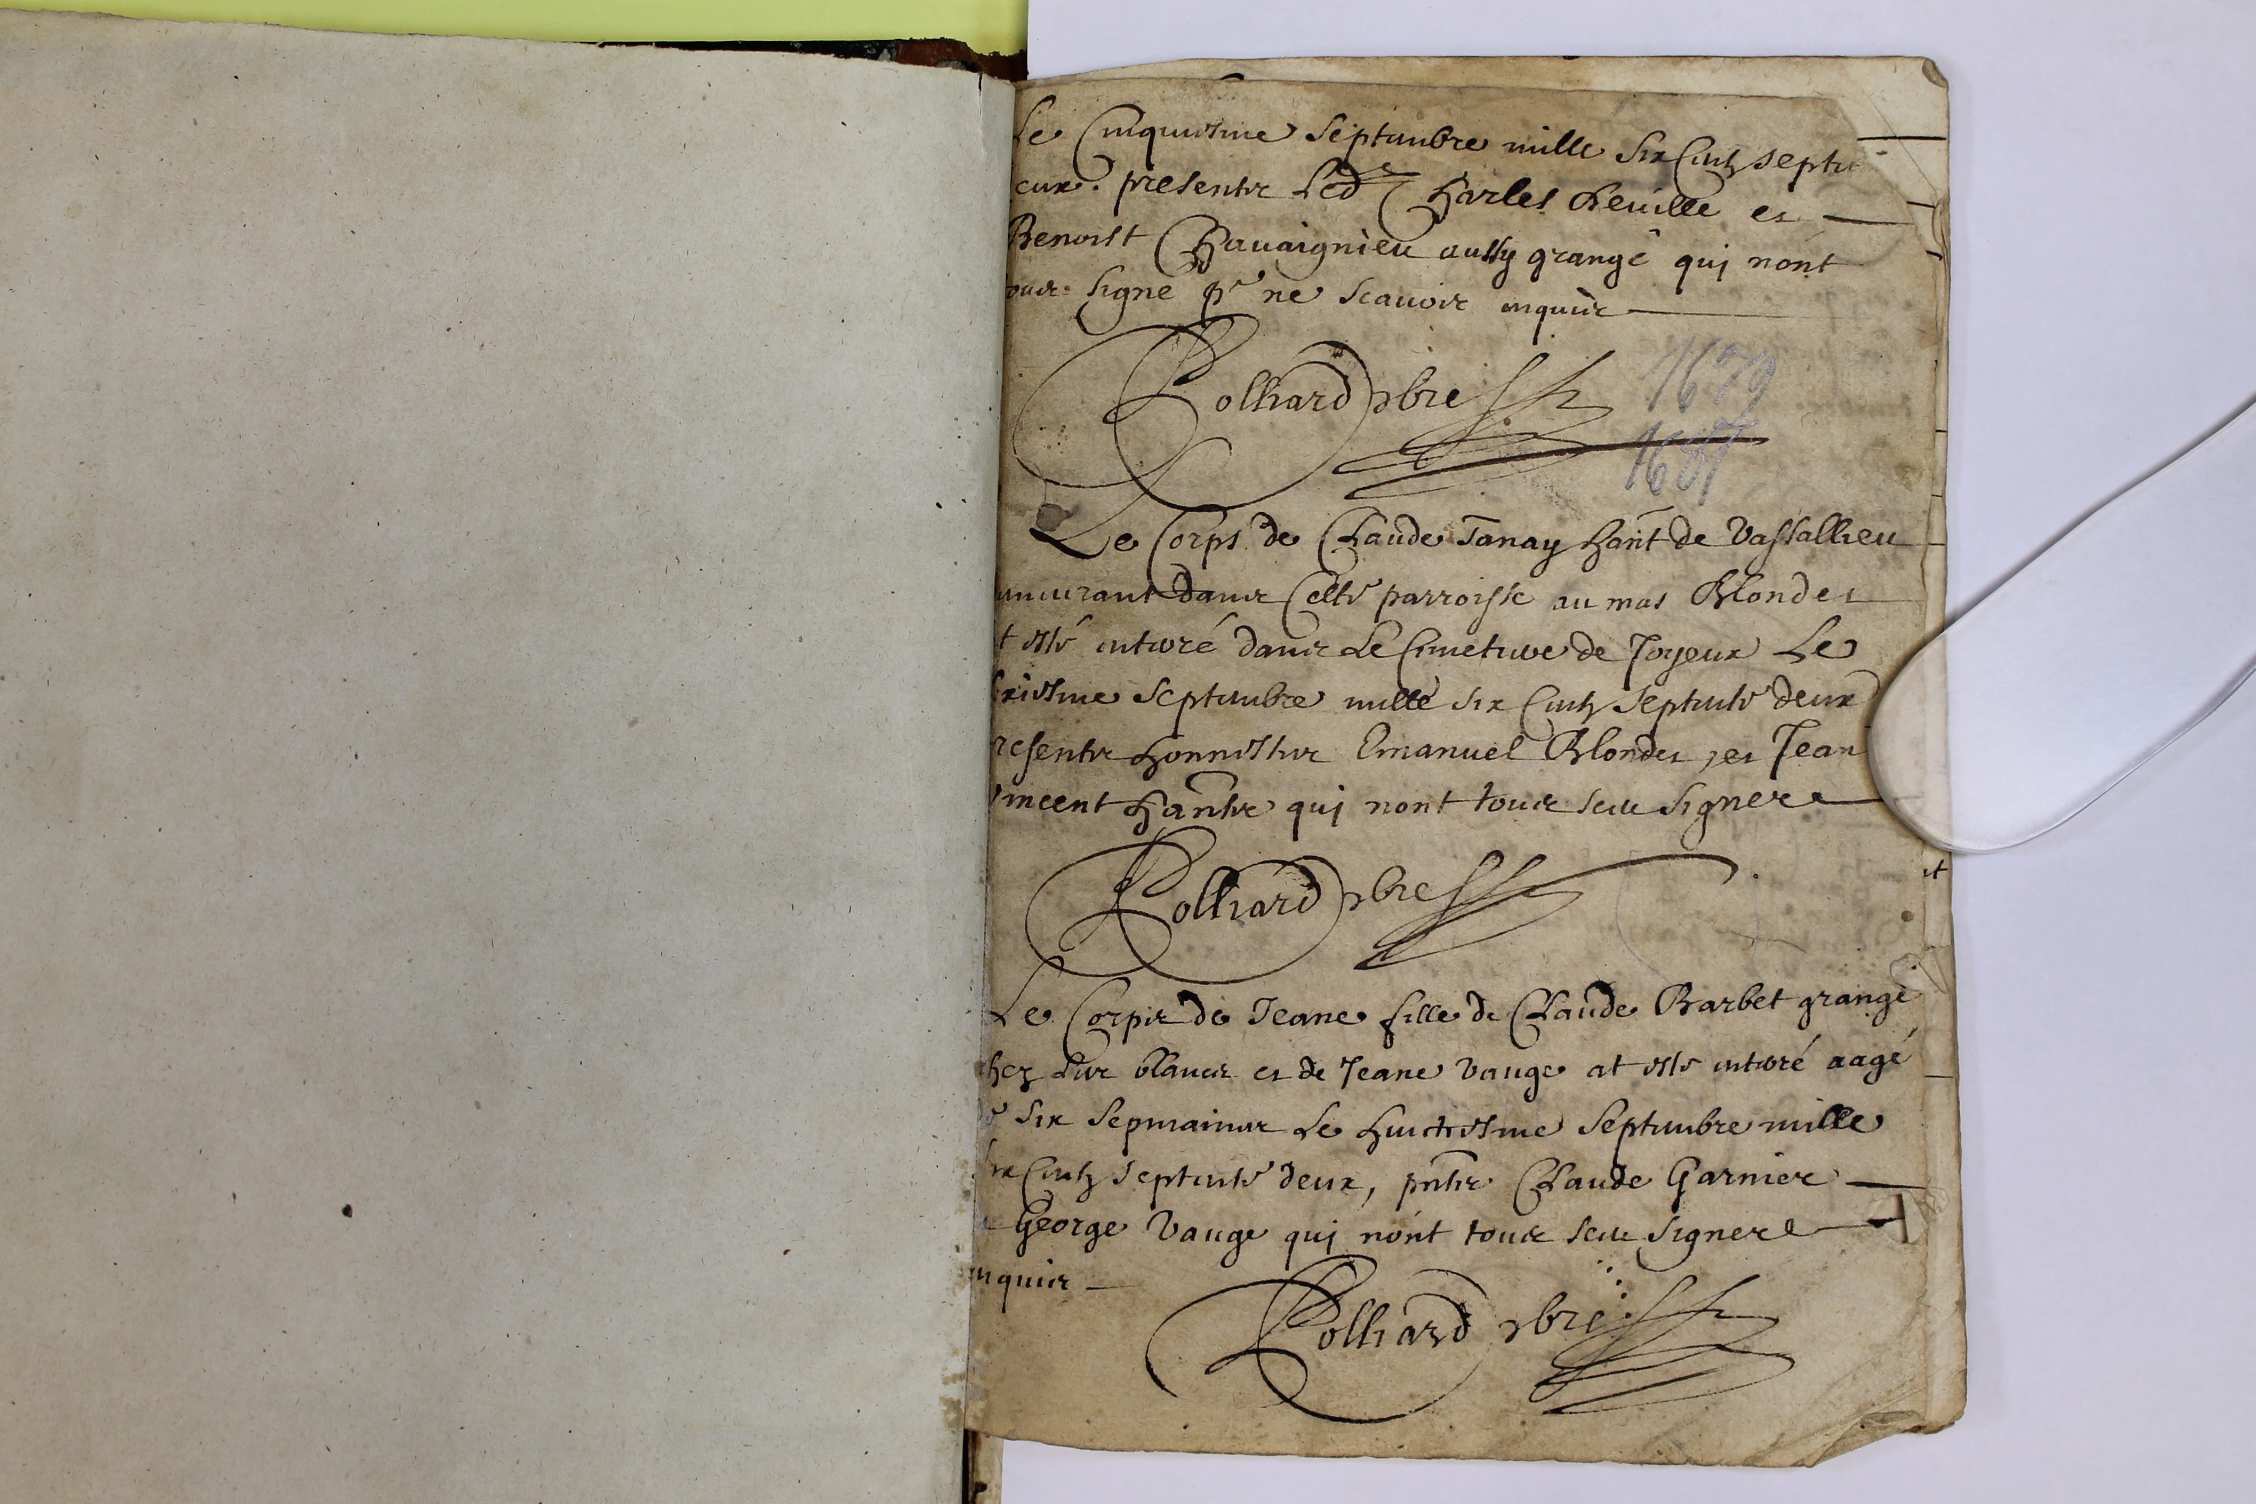 Le Cinquiesme Septembre mille Six Centz septe
eux. presentz Led Charles Reuille et
Benoist Chavaignieu aussy grangé qui nont
signé pr ne scavoir enquis
Rolliard pbre
1679
Le Corps de Claude Tanay hant de Vassallieu
emeurant dans Cette parroisse au mas Blondet
t esté enterré dans Le Cimetiere de Joyeux Le
ixiesme Septembre mille six Centz septente deux
resentz honnestes Emanuel Blondet, et Jean
incent hantz qui nont tous sceu signer
Rolliard pbre
Le Corps de Jeane fille de Claude Barbet grangé
hez et de Jeane Vauge at esté enterré aagé
de Six Sepmaines Le huictiesme Septembre mille
ix Centz septente deux, pntz Claude Garnier
George Vauge qui nont tous sceu signer
nquis
Rolliard pbre